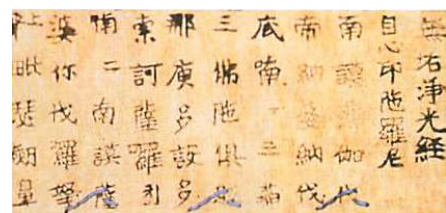 無垢淨光経
自心印陁羅尼
南謨薄伽伐
帝納婆納伐
底喃三藐
三佛陁俱
那庾多設多
索訶薩囉引
喃二南謨薩
婆你伐羅拏
毗瑟